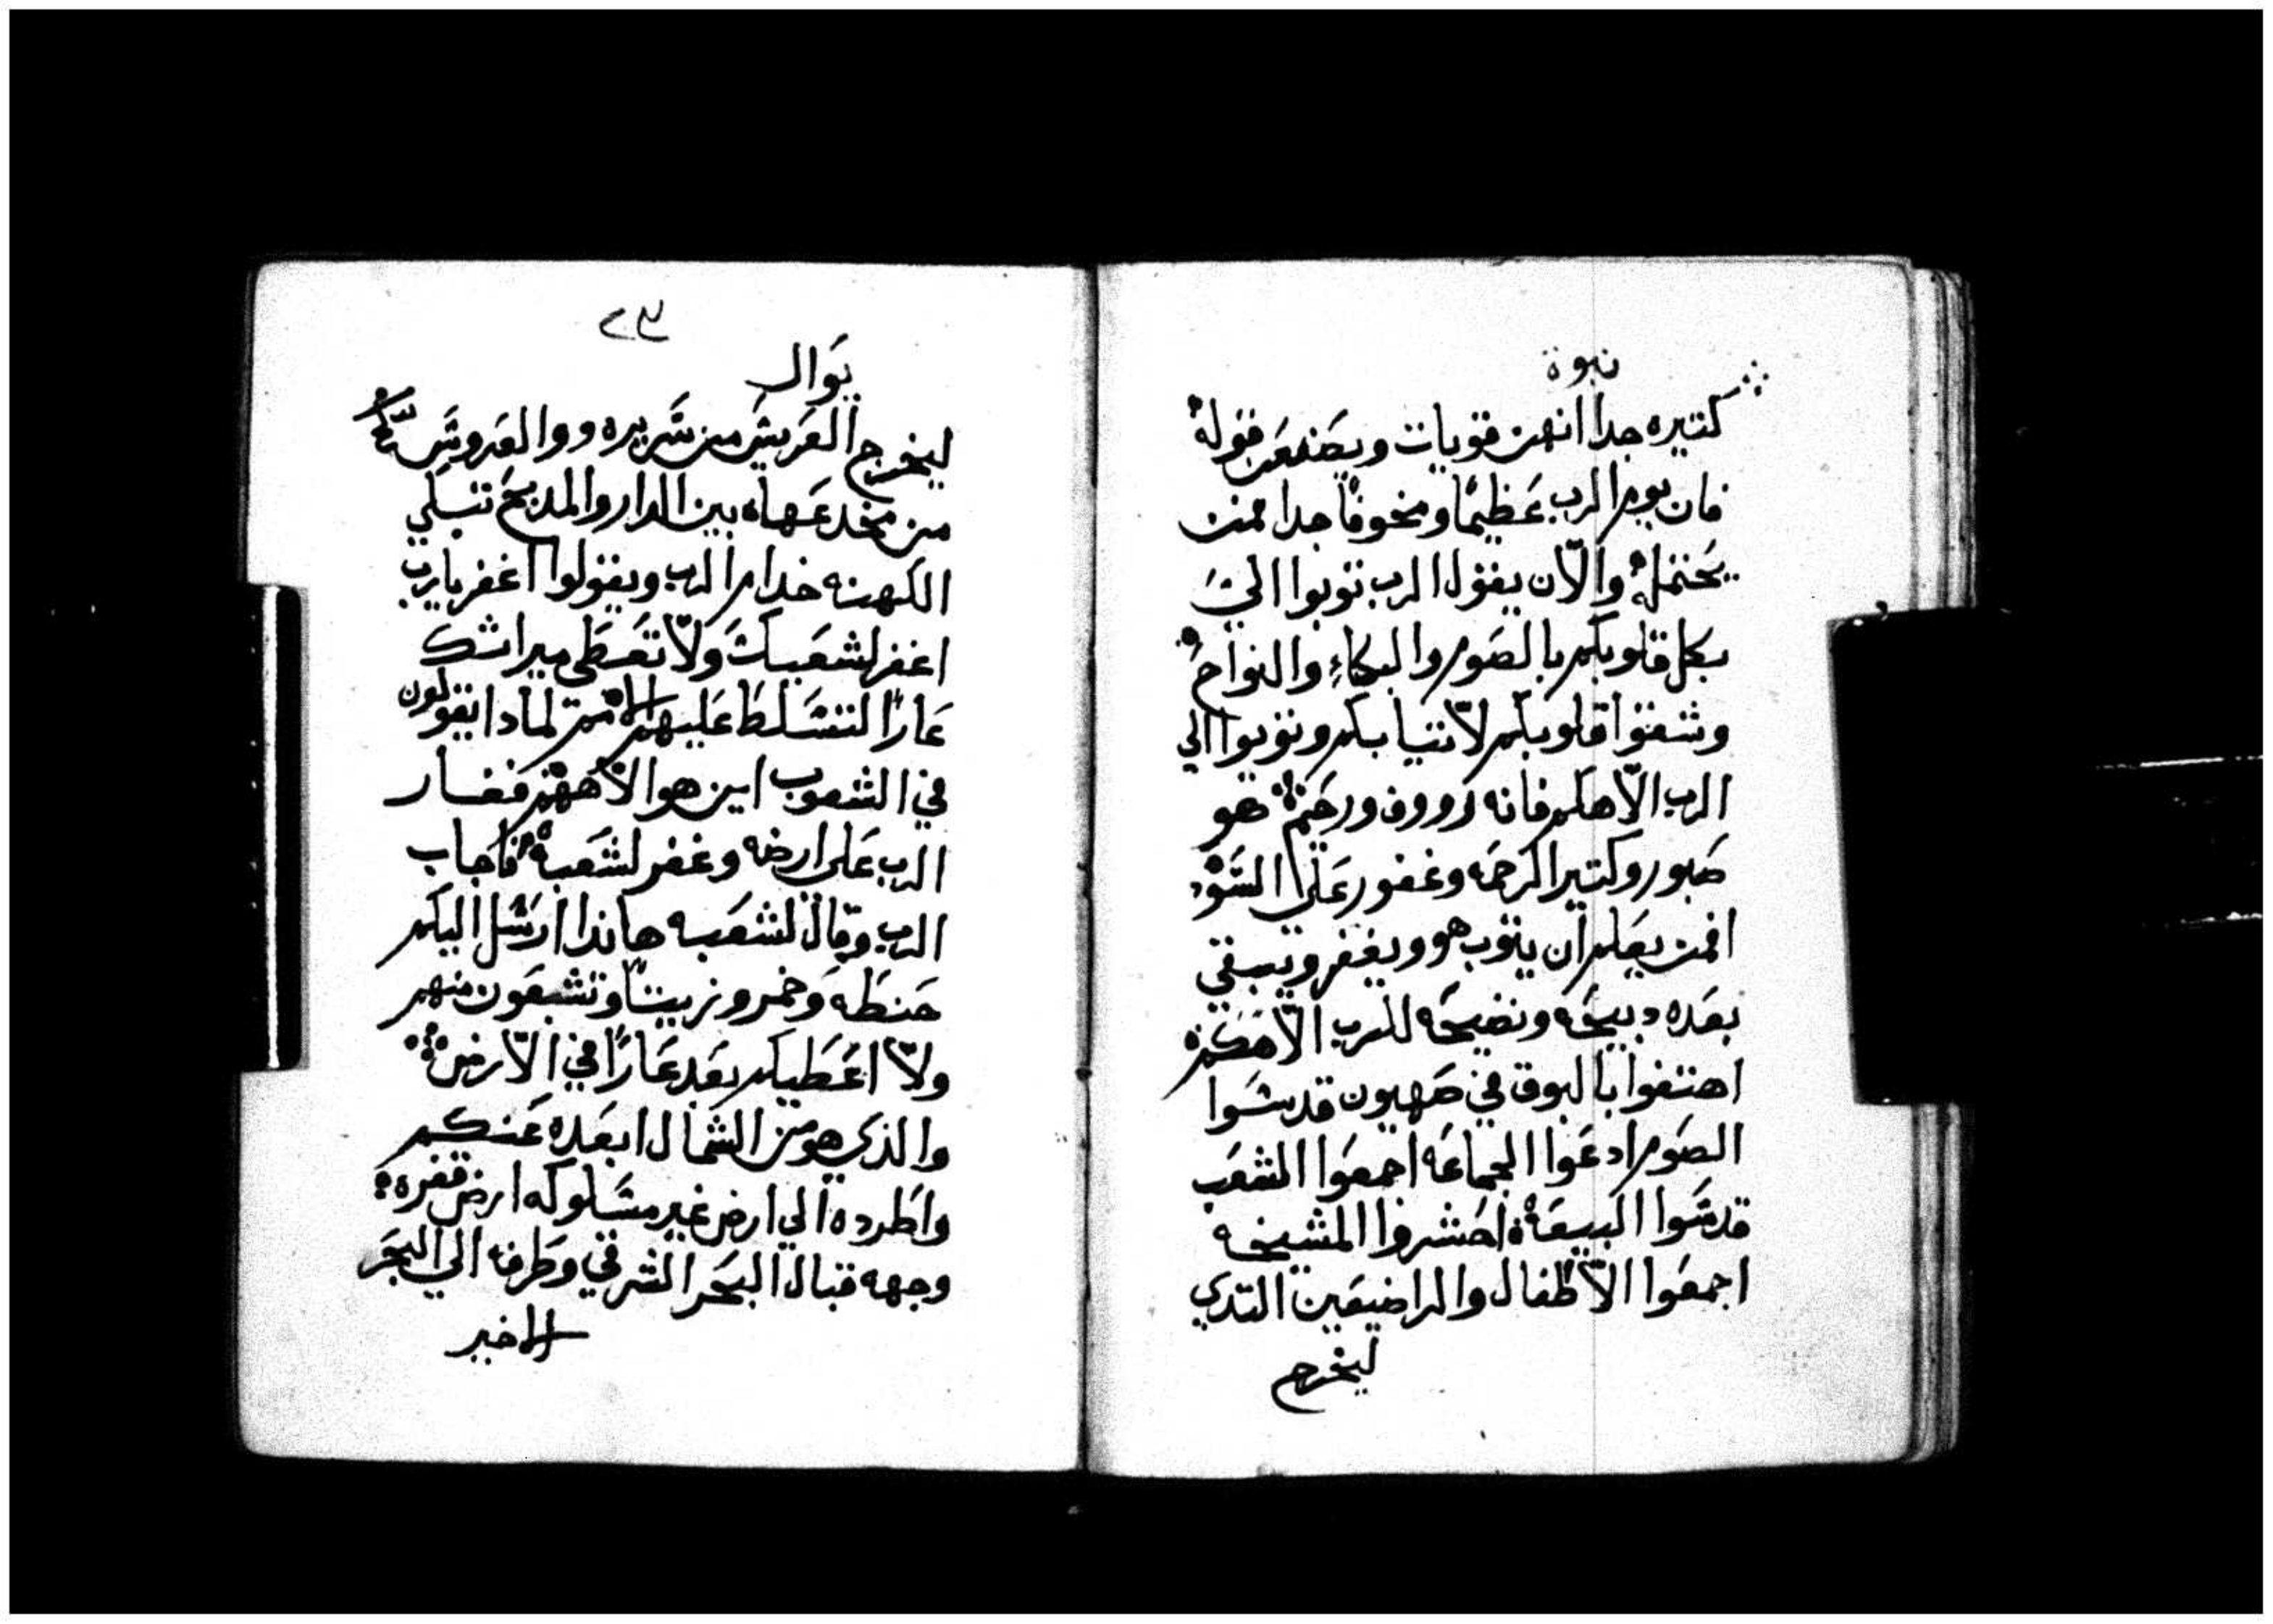 نبوة
كتيره جدا انهن قويات ويصنعن قوله
فان يوم الرب عَظيمًا ومخوفًا جدا فمن
يحتمله والآن يقول الرب توبوا اليَّ
بكل قلوبكم بالصَوم والبكاءِ والنواح
وشقتوا قلوبكم لا تيابكم وتوبوا الي
الرب الاهكم فانه رووف ورحَيم هو
صَبور وكتير الرحَمه وغفور عَلي السَوء
افمن يعَلم ان يتوب هو ويغفر ويبقي
بعَده دبيحَه ونضيحَه للرب الاهَكم
اهتفوا بالبوق في صَهيون قدسَوا
الصَوم ادعَوا الجماعَه اجمعَوا الشعَب
قدسَوا البيعَة احَشروا المشيخه
اجمعَوا الاطَفال والراضيعَين التدي
ليخرج
٢٣
يوال
ليخرج العَريسَ من سَريره والعَروسَ
من مخدعَها بين الدار والمدبحَ تبكي
الكهنه خدام الرب ويقولوا اغفر يارب
اغفر لشعَبك ولا تعَطَي ميراتك
عَارًا لتتسَلطَ عَليهم الامم لمادا يقولون
في الشعوب اين هو الاههم فغار
الرب عَلي ارضه وغفر لشعَبه فاجاب
الرب وقال لشعَبه هاندا ارسَل اليكم
حَنطَه وَخمر وزيتًا وتشبعَون منهم
ولا اعَطَيكم بعَد عَارًا في الارض
والذي هو من الشمال ابعَده عَنكم
واطَرده الي ارض غير مسَلوكه ارض قفره
وجهه قبال البحَر الشرقي وطَرفه الي البحَر
الاخير